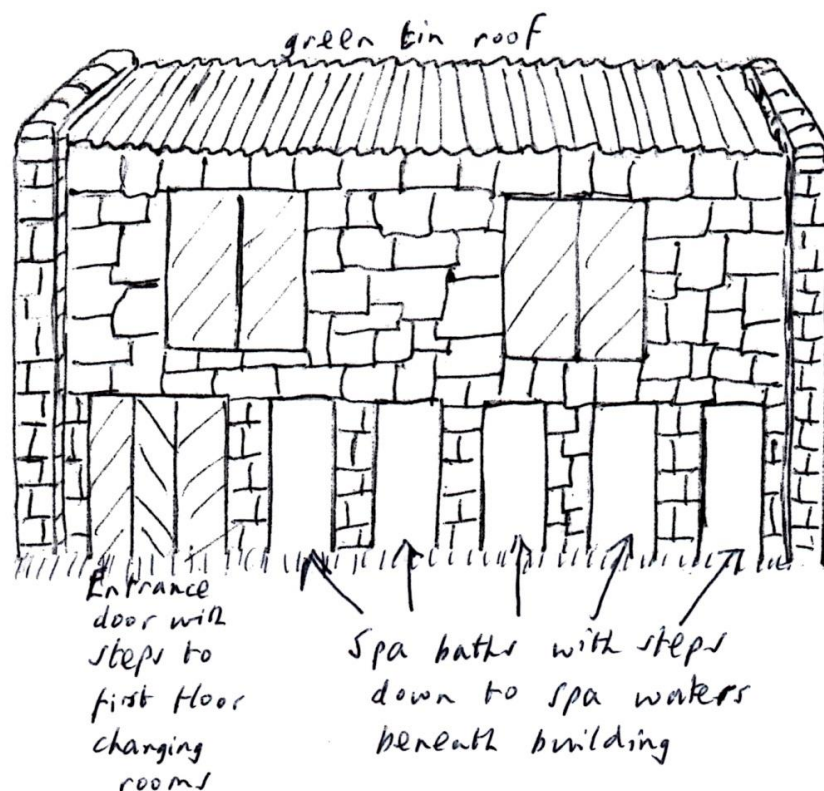 green tin roof
Entrance
door with
steps to
first floor
changing
rooms
Spa baths with steps
down to spa waters
beneath building